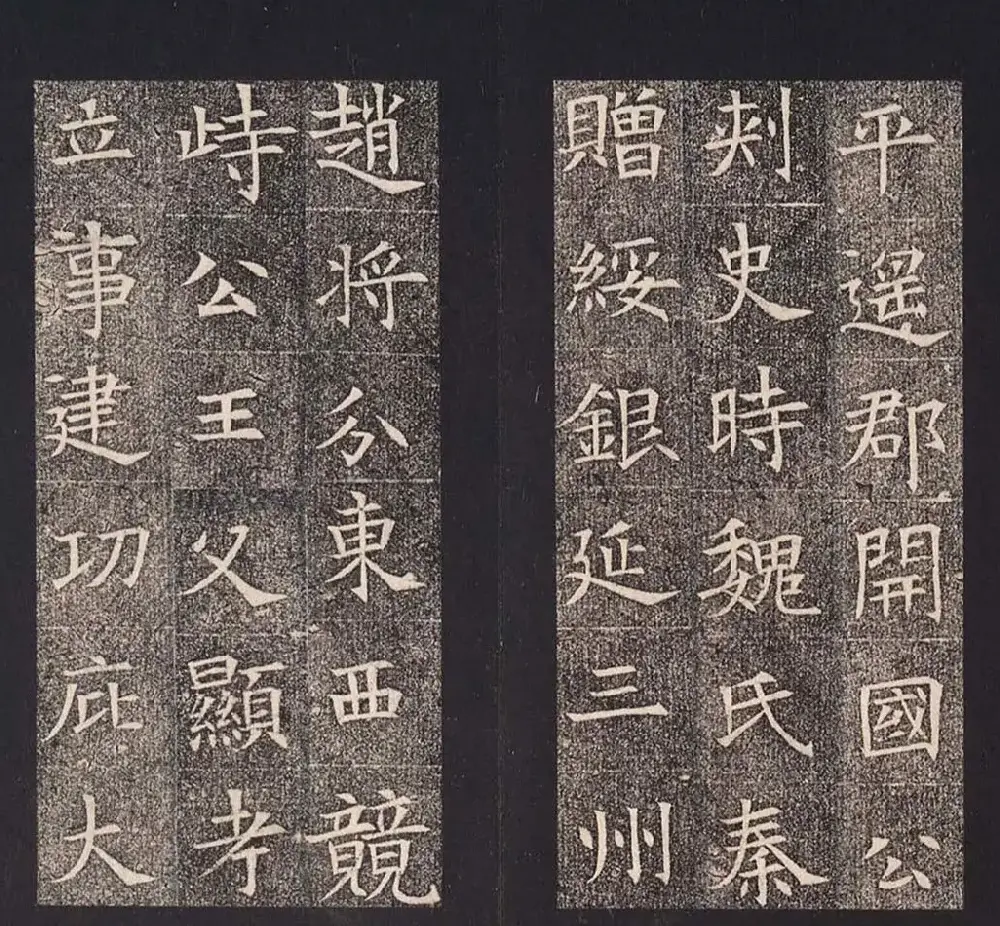 平遥郡開國公
刾史時魏氏秦
贈綏銀延三州
趙將分東西競
峙公王父顯考
立事建功庇大